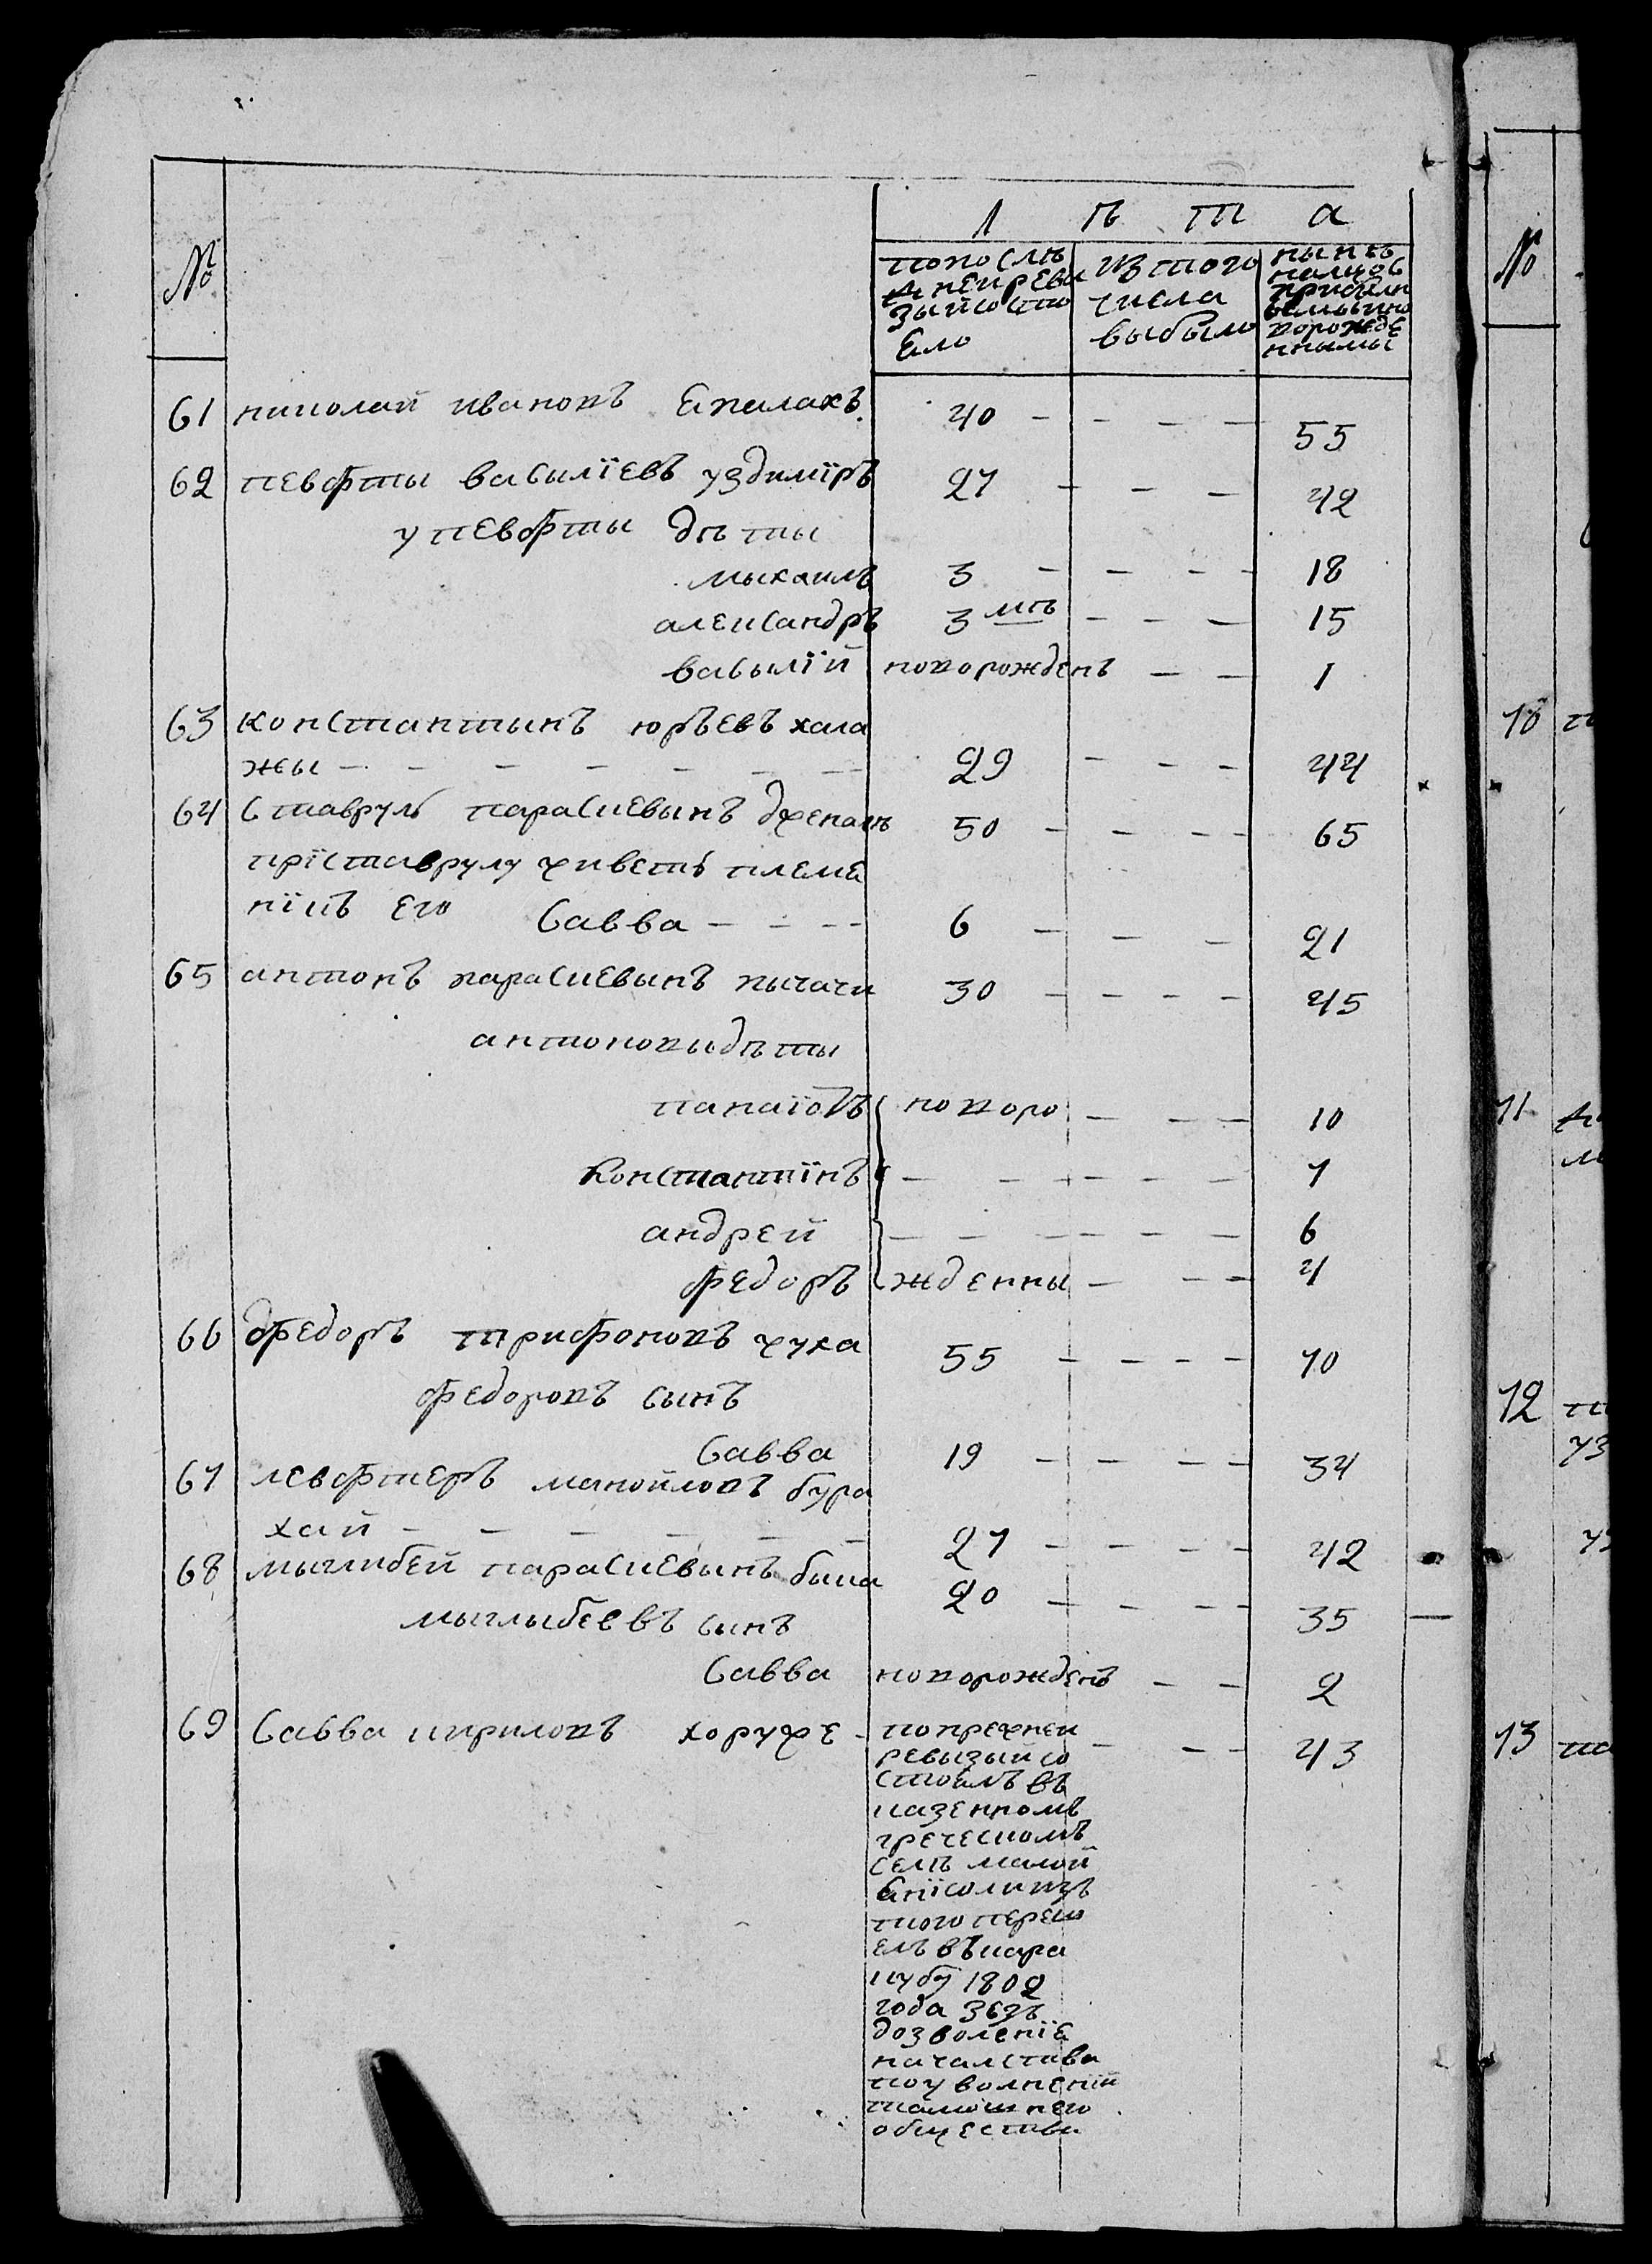 №
л ѣ т а
попослѣ
днеи реви
зыи состо
Ело
изтого
числа
выбыло
нынѣ
налицо с
прибилы
нимы и но
ворожде
ннымы
61 николай ивановъ Епалакъ 40 - - - - 55
62 певфты василїевъ уздимїръ 27 - - - 42
у певофты дѣты
михаилъ 3 - - - - 18
александръ 3 мѣ - - - 15
василїй новорожденъ - - 1
63 константынъ юрьевъ хала
жы - - - - - - - 29 - - - 44
64 Ставруль парасиевынъ 50 - - - - 65
прїставрулу живетъ племе
нїкъ его Савва - - - - 6 - - - 21
65 антонъ парасиевынъ пычачи 30 - - - - 45
антоновы дѣты
панаїотъ новоро - - - 10
Константїнъ - - - - - - 7
андрей - - - - - - 6
федоръ жденны - - - 4
66 федоръ трифоновъ чуха 55 - - - - 70
федоровъ сынъ
Савва 19 - - - - 34
67 левфтеръ манойловъ бура
хай - - - - - - 27 - - - - 42
68 мыглибей парасиевынъ быка 20 - - - - 35 -
мыглыбеевъ сынъ
Савва новорожденъ - - 2
69 Савва кириловъ хоруже - попрежнеи - - - 43
ревызыи со
стоялъ въ
казенномъ
греческомъ
селѣ малой
Енїсоли изъ
того переш
елъ въ кара
кубу 1802
года безъ
дозволенїе
началства
поуволненїи
тамошнего
общества
№
70
71
72
73